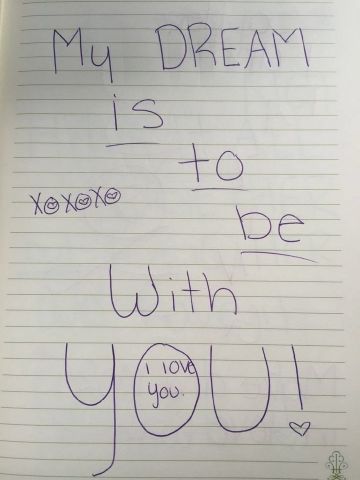 My DREAM
is
to
XOXOXO
be
With
YOU!
i love
you.